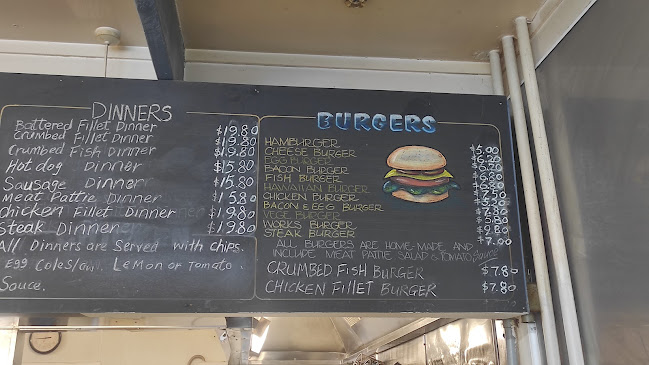 DINNERS
Battered Fillet Dinner $19.80
Crumbed Fillet Dinner $19.80
Crumbed Fish Dinner $19.80
Hot dog Dinner $15.80
Sausage Dinner $15.80
Meat Pattie Dinner $15.80
Chicken Fillet Dinner $19.80
Steak Dinner $19.80
All Dinners are Served with chips.
Egg Coleslaw. Lemon or Tomato.
Sauce.
BURGERS
HAMBURGER $5.00
CHEESE BURGER
EGG BURGER
BACON BURGER
FISH BURGER
HAWAIIAN BURGER
CHICKEN BURGER
BACON & EGG BURGER
VEGE BURGER
WORKS BURGER $9.80
STEAK BURGER $7.00
ALL BURGERS ARE HOME-MADE AND
INCLUDE MEAT PATTIE SALAD & TOMATO Sauce
CRUMBED FISH BURGER $7.80
CHICKEN FILLET BURGER $7.80